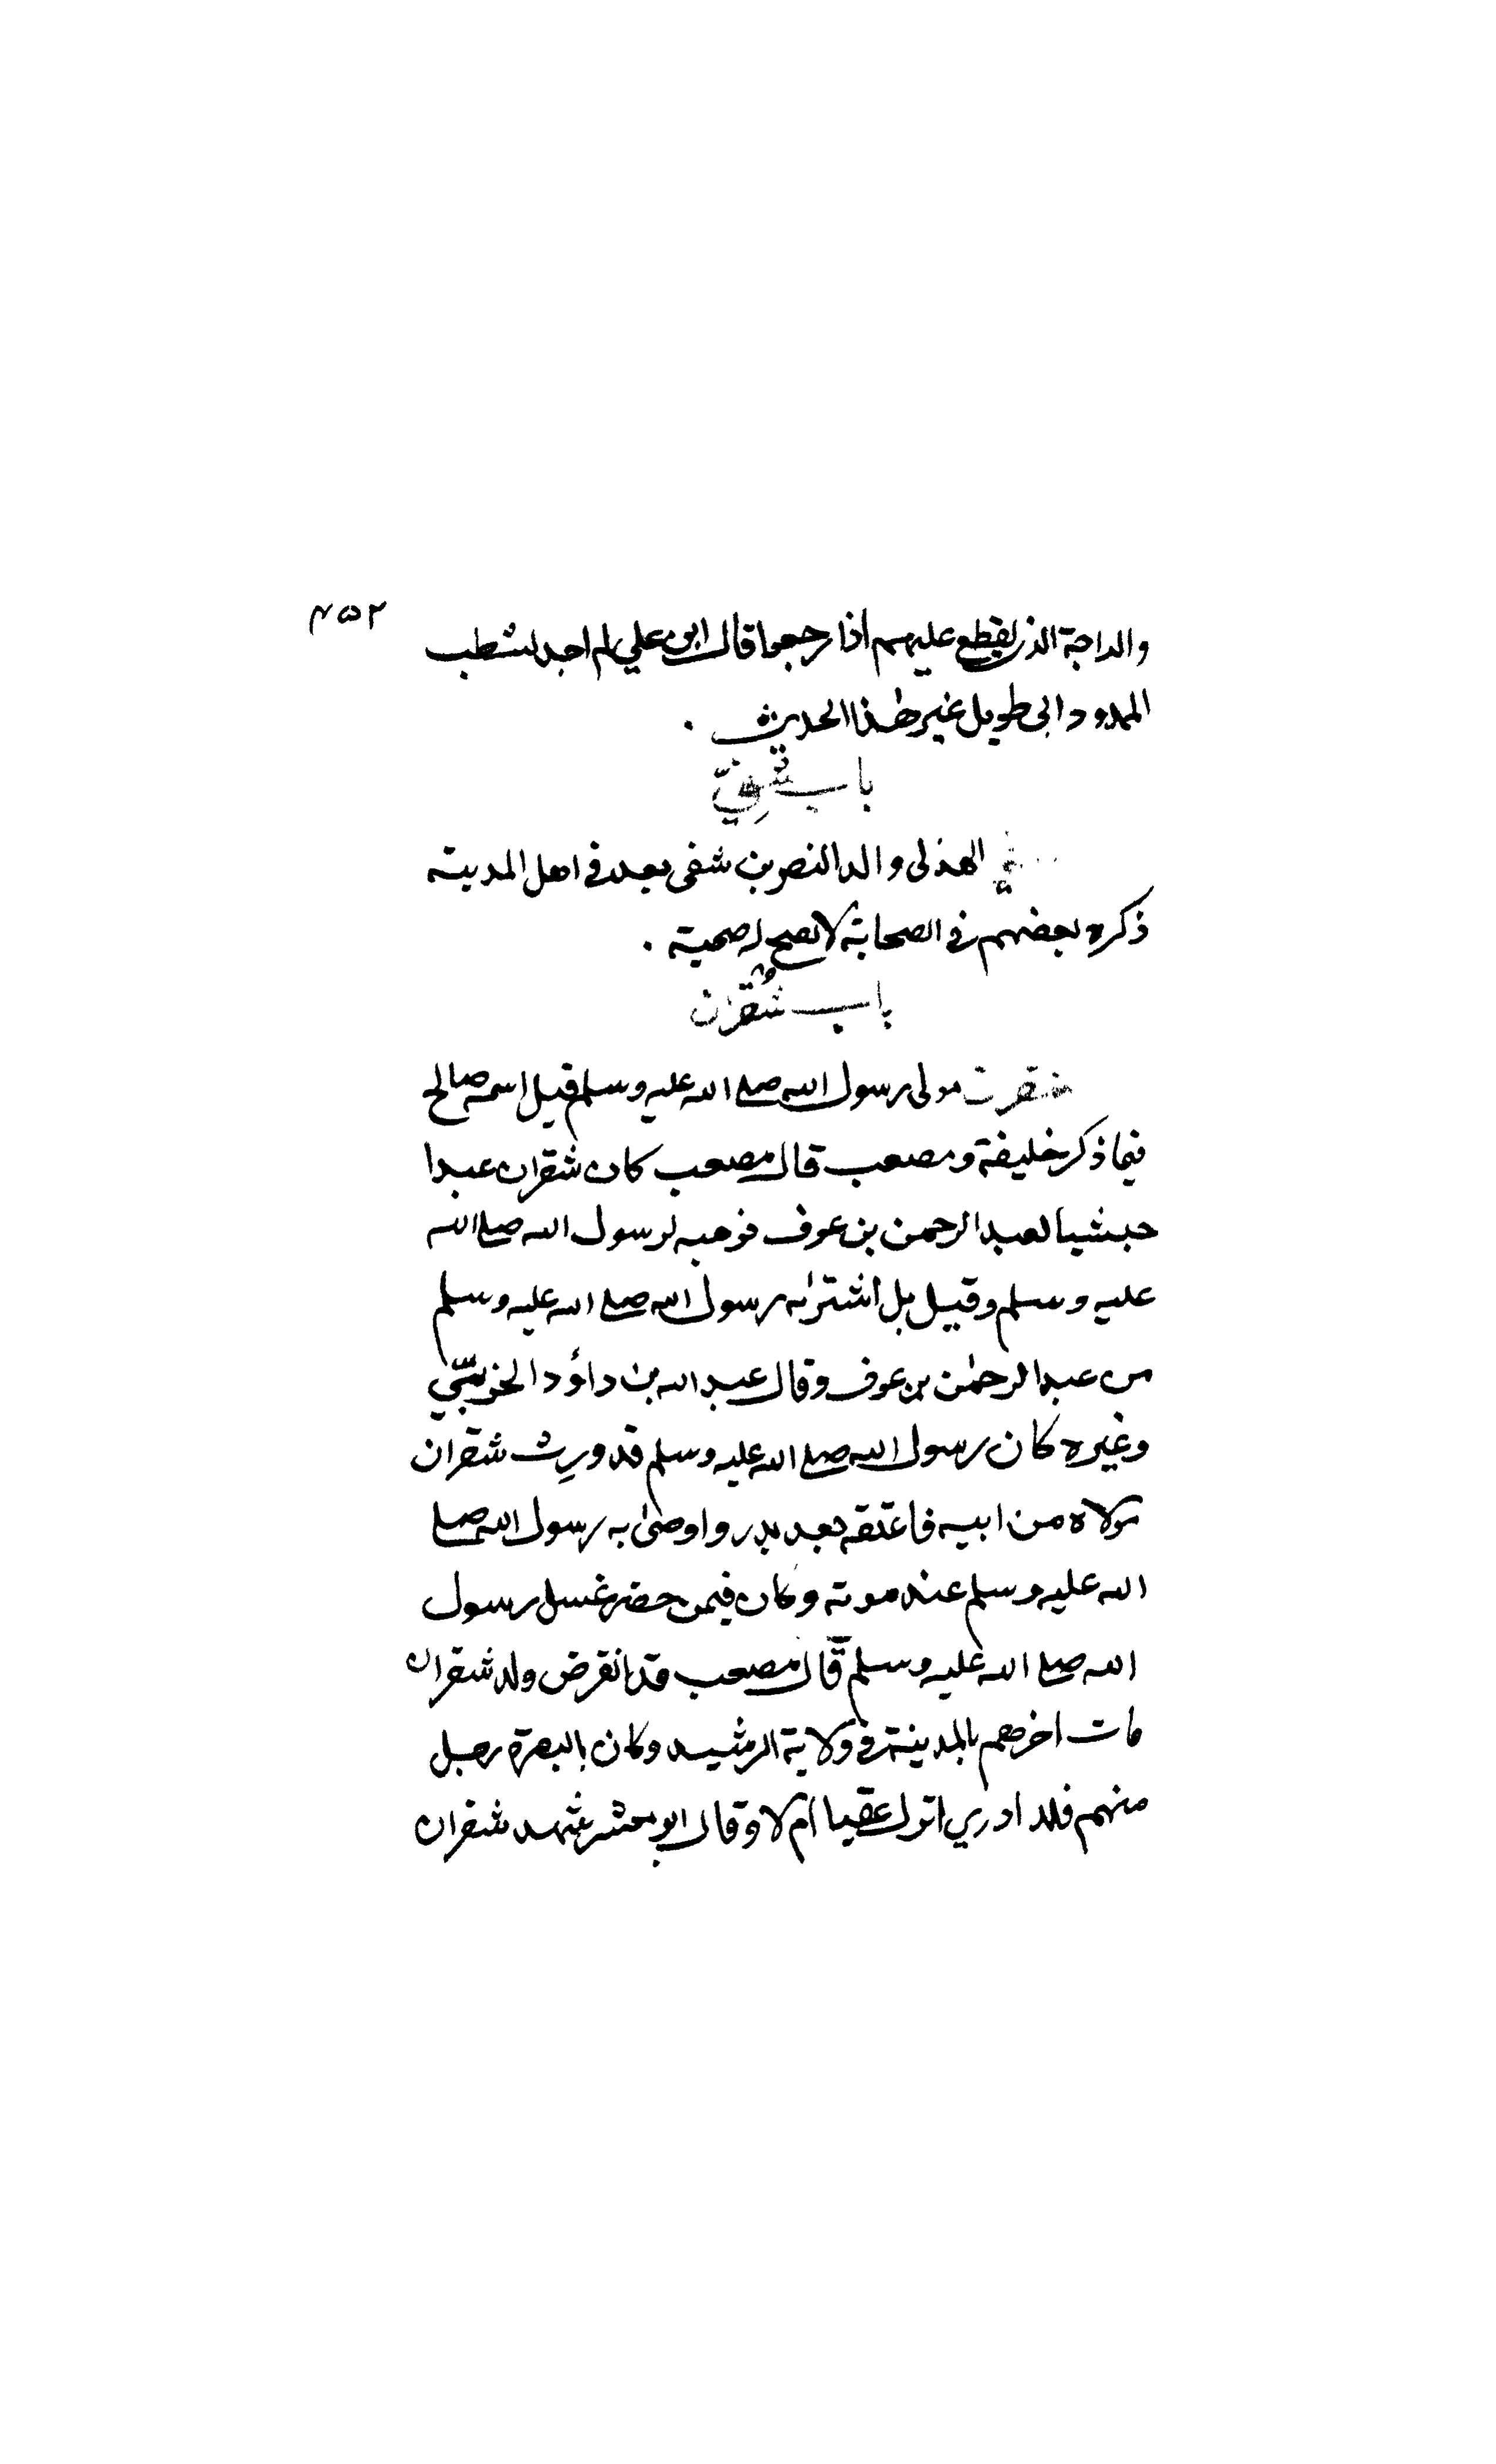 ۴۵۲
والداجة الذي يقطع عليهم اذا رجعوا قال ابن علي لم اجد لشطب
الممدود ابى طويل غير هذا الحديث .
باب شفيّ
الهذلى والد النصر بن شفى يعد فى اهل المدينة
ذكره بعضهم فى الصحابة لا تصح له صحبة .
باب شُقران
شقران مولى رسول الله صلے الله عليه وسلم قيل اسمه صالح
فيما ذكر خليفة ومصعب قال مصعب كان شقران عبدا
حبشيا لعبد الرحمن بن عوف فوهبه لرسول الله صلے الله
عليه وسلم وقيل بل اشتراه رسول الله صلے الله عليه وسلم
من عبد الرحمٰن بن عوف وقال عبد الله بن داؤد الخريبّي
وغيره كان رسول الله صلے الله عليه وسلم قد ورِث شقران
مولاه من ابيه فاعتقه بعد بدر واوصىٰ به رسول الله صلے
الله عليه وسلم عند موته وكان فيمن حضر غسل رسول
الله صلے الله عليه وسلم قال مصعب قد انقرض ولد شقران
مات اخرهم بالمدينة فى ولاية الرشيد وكان بالبصرة رجل
منهم فلا ادري اترك عقبا ام لا وقال ابو معشر شهد شقران